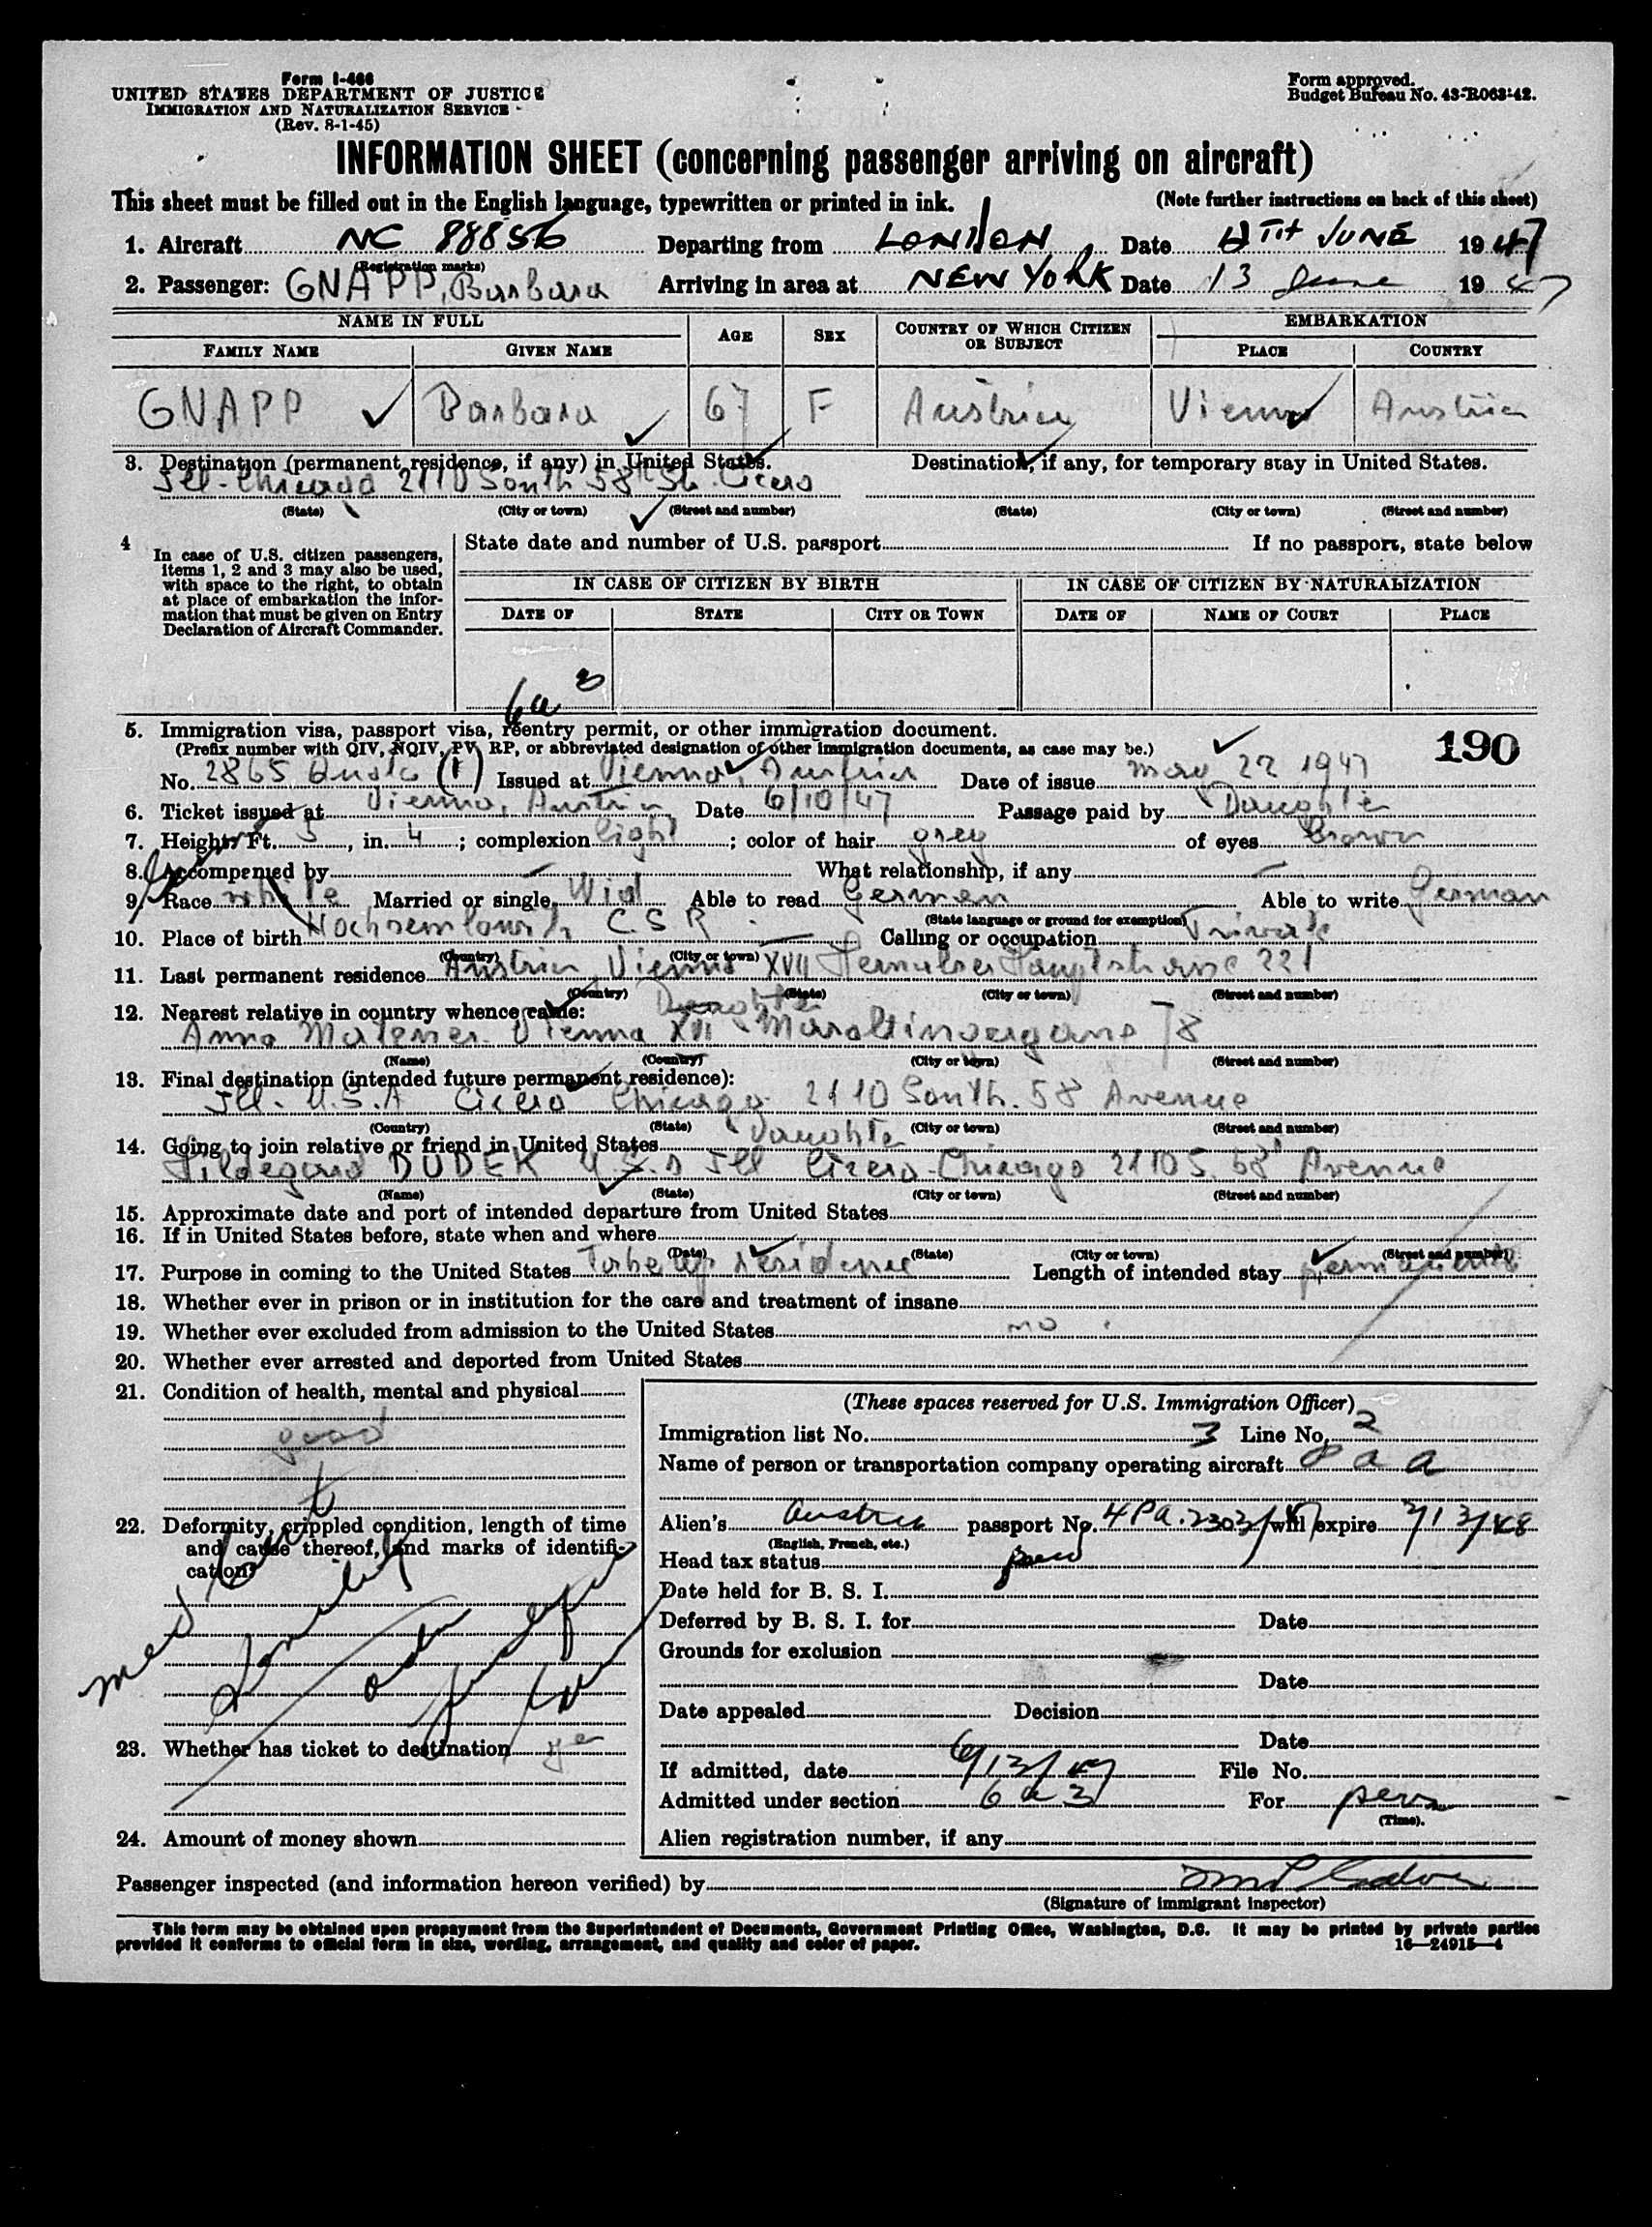 Form I-466
UNITED STATES DEPARTMENT OF JUSTICE
IMMIGRATION AND NATURALIZATION SERVICE
(Rev. 8-1-45)
Form approved.
Budget Bureau No. 43-R063-42.
INFORMATION SHEET (concerning passenger arriving on aircraft)
This sheet must be filled out in the English language, typewritten or printed in ink. (Note further instructions on back of this sheet)
1. Aircraft NC 88856 Departing from LONDON Date TH JUNE 1947
(Registration marks)
2. Passenger: GNAPP, Barbara Arriving in area at NEW YORK Date 13 June 1947
NAME IN FULL AGE SEX COUNTRY OF WHICH CITIZEN OR SUBJECT EMBARKATION
FAMILY NAME GIVEN NAME PLACE COUNTRY
GNAPP Barbara 67 F Austria Vienna Austria
3. Destination (permanent residence, if any) in United States. Destination, if any, for temporary stay in United States.
Ill - Chicago 2110 South 58th St. Cicero
(State) (City or town) (Street and number) (State) (City or town) (Street and number)
4 In case of U.S. citizen passengers, items 1, 2 and 3 may also be used, with space to the right, to obtain at place of embarkation the information that must be given on Entry Declaration of Aircraft Commander.
State date and number of U.S. passport If no passport, state below
IN CASE OF CITIZEN BY BIRTH IN CASE OF CITIZEN BY NATURALIZATION
DATE OF STATE CITY OR TOWN DATE OF NAME OF COURT PLACE
6a 3
5. Immigration visa, passport visa, reentry permit, or other immigration document.
(Prefix number with QIV, NQIV, PV, RP, or abbreviated designation of other immigration documents, as case may be.) 190
No. 2865 Quota (1) Issued at Vienna, Austria Date of issue May 22 1947
6. Ticket issued at Vienna, Austria Date 6/10/47 Passage paid by Daughter
7. Height, Ft. 5, in. 4; complexion light; color of hair grey of eyes brown
8. Accompenied by What relationship, if any
9. Race white Married or single Wid Able to read German Able to write German
(State language or ground for exemption)
10. Place of birth C.S.R. Calling or occupation Private
(Country) (City or town)
11. Last permanent residence Austria, Vienna XVII Hernalser Hauptstrasse 221
(Country) (State) (City or town) (Street and number)
12. Nearest relative in country whence came: Daughter
Anna Vienna XVII 78
(Name) (Country) (City or town) (Street and number)
13. Final destination (intended future permanent residence):
Ill. U.S.A Cicero Chicago 2110 South. 58 Avenue
(Country) (State) (City or town) (Street and number)
14. Going to join relative or friend in United States Daughter
Hildegard DUDEK U.S.A Ill Cicero-Chicago 2110 S. 58 Avenue
(Name) (State) (City or town) (Street and number)
15. Approximate date and port of intended departure from United States
16. If in United States before, state when and where
(Date) (State) (City or town) (Street and number)
17. Purpose in coming to the United States residence Length of intended stay permanently
18. Whether ever in prison or in institution for the care and treatment of insane
19. Whether ever excluded from admission to the United States no
20. Whether ever arrested and deported from United States
21. Condition of health, mental and physical
good
22. Deformity, crippled condition, length of time and cause thereof, and marks of identification
med
23. Whether has ticket to destination yes
24. Amount of money shown
(These spaces reserved for U.S. Immigration Officer)
Immigration list No. 3 Line No. 2
Name of person or transportation company operating aircraft P a a
Alien's Austria passport No. 4Pa.2303/47 will expire 3/13/48
(English, French, etc.)
Head tax status
Date held for B. S. I.
Deferred by B. S. I. for Date
Grounds for exclusion
Date
Date appealed Decision
Date
If admitted, date 6/13/47 File No.
Admitted under section 6 a 3 For perm
(Time).
Alien registration number, if any
Passenger inspected (and information hereon verified) by
(Signature of immigrant inspector)
This form may be obtained upon prepayment from the Superintendent of Documents, Government Printing Office, Washington, D.C. It may be printed by private parties
provided it conforms to official form in size, wording, arrangement, and quality and color of paper. 16—24915—4